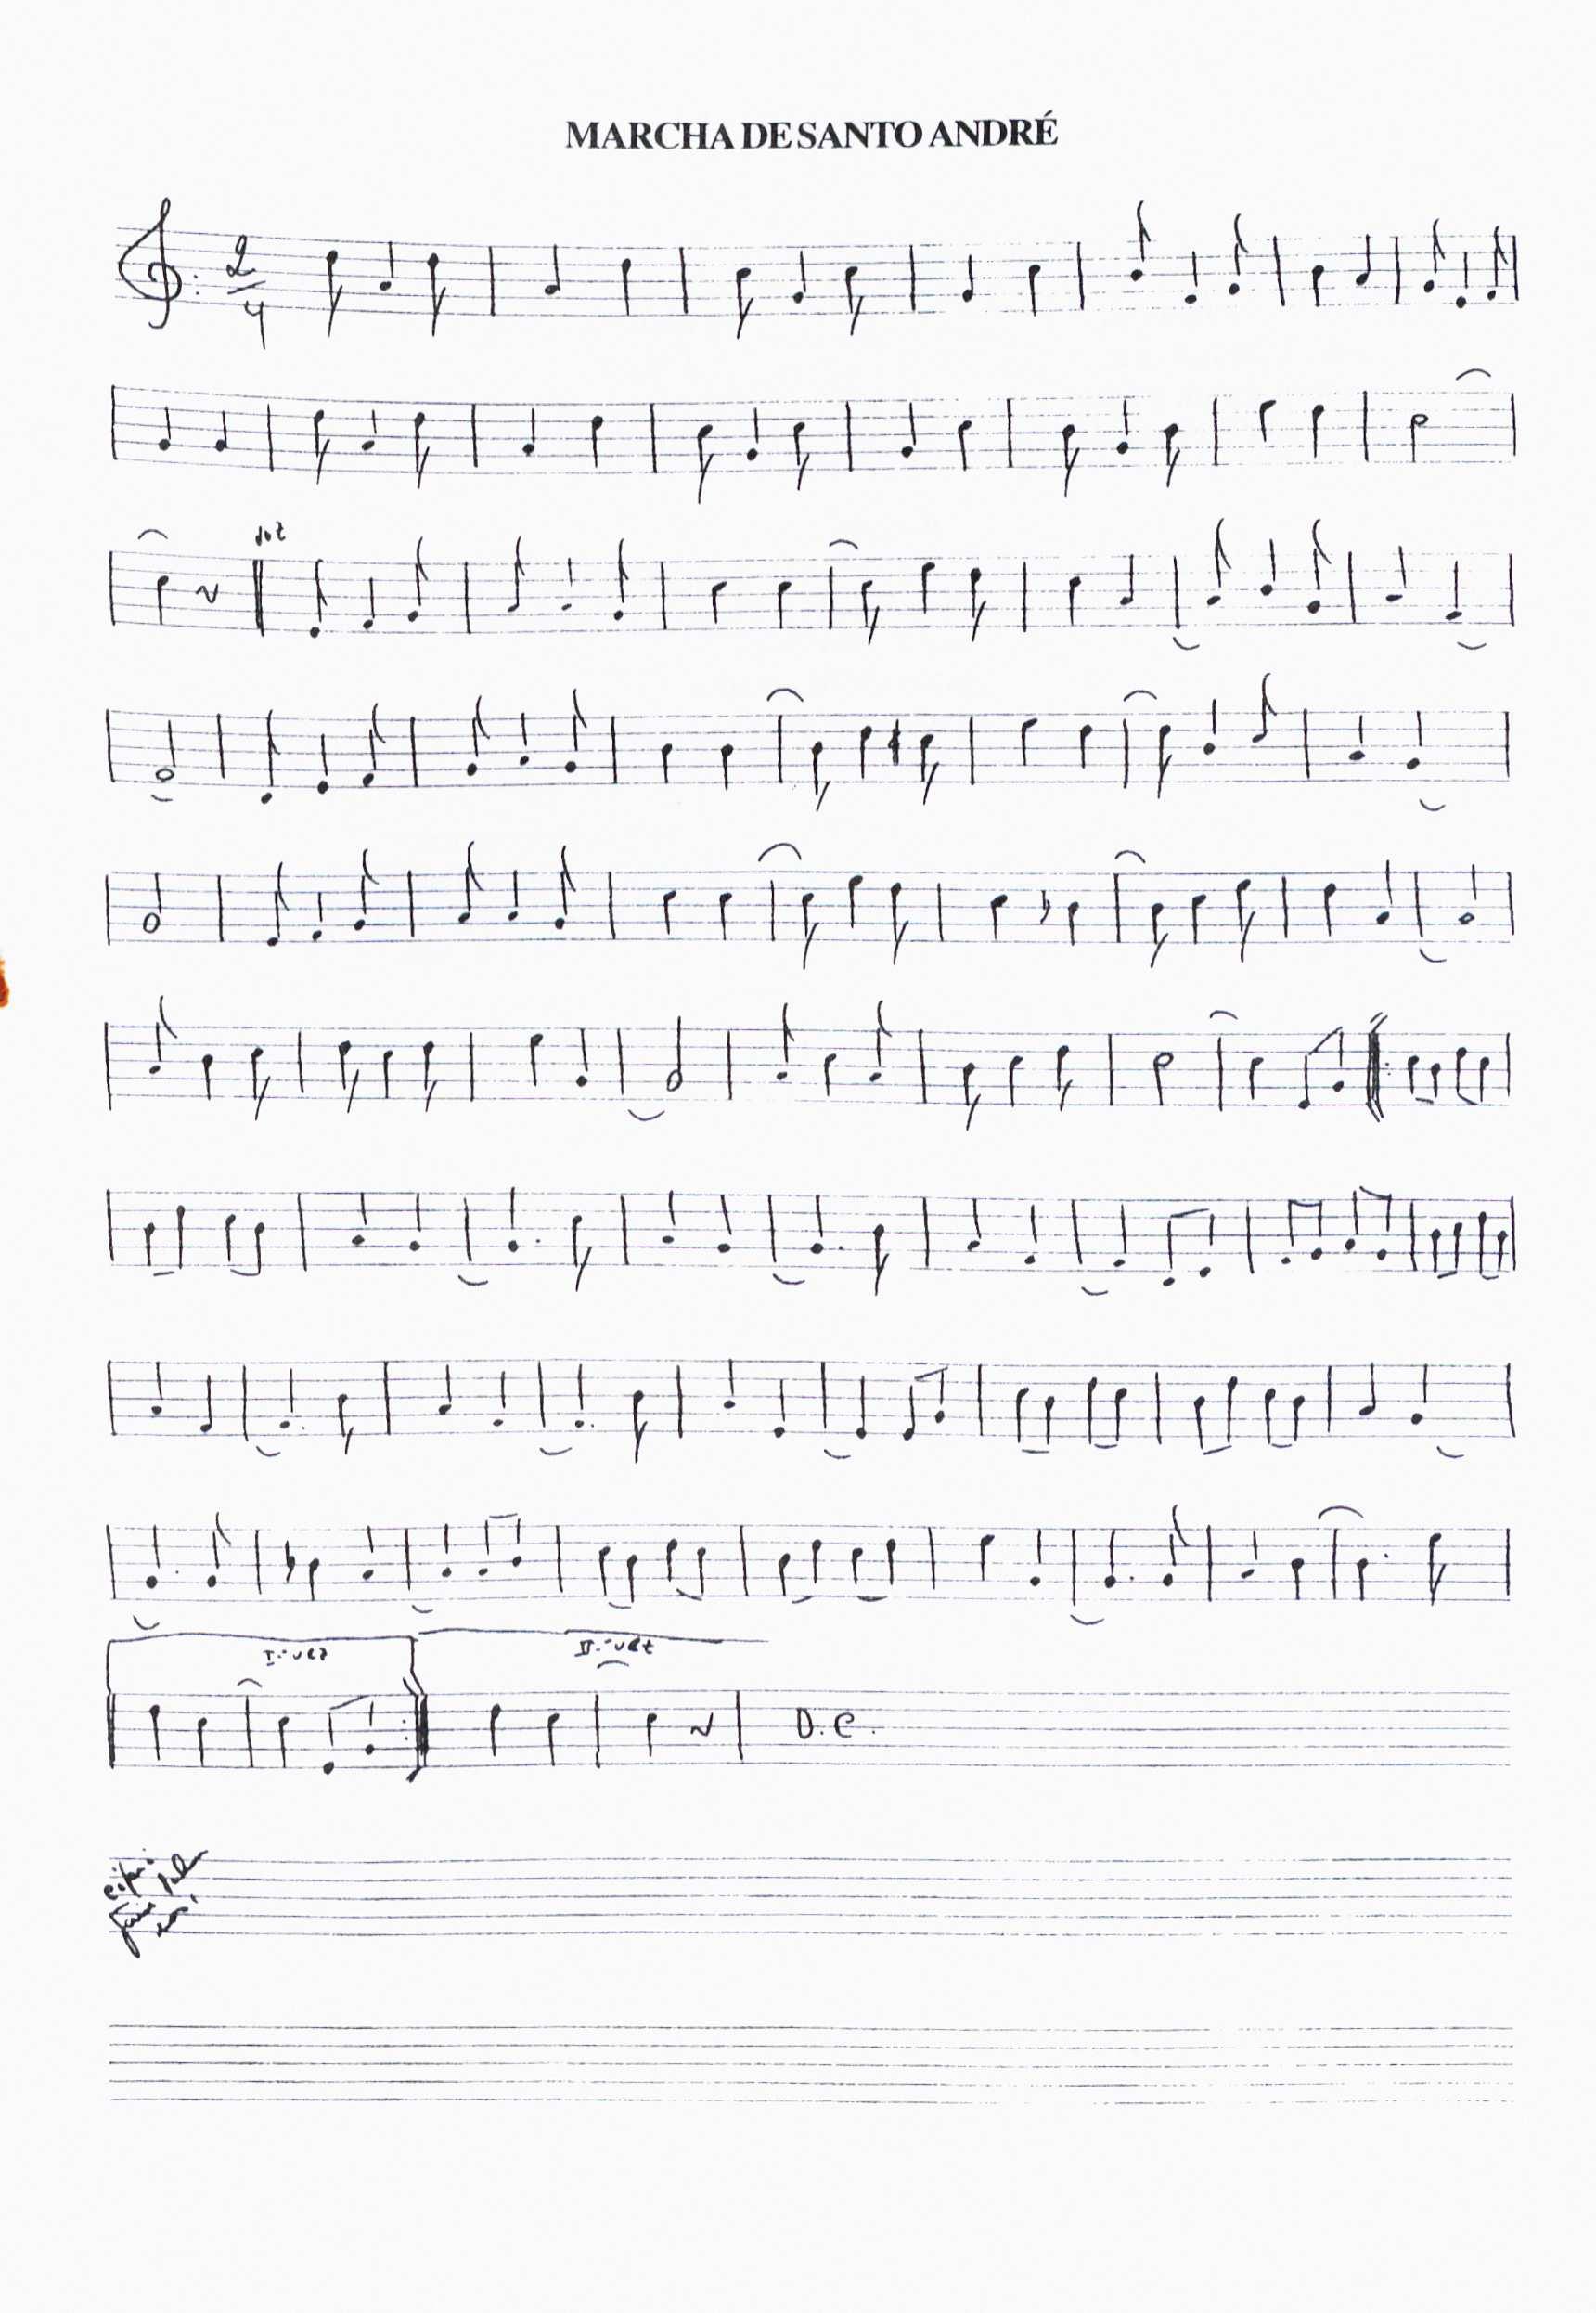 MARCHA DE SANTO ANDRÉ
2
4
I.ª vez
II.ª vez
D.C.